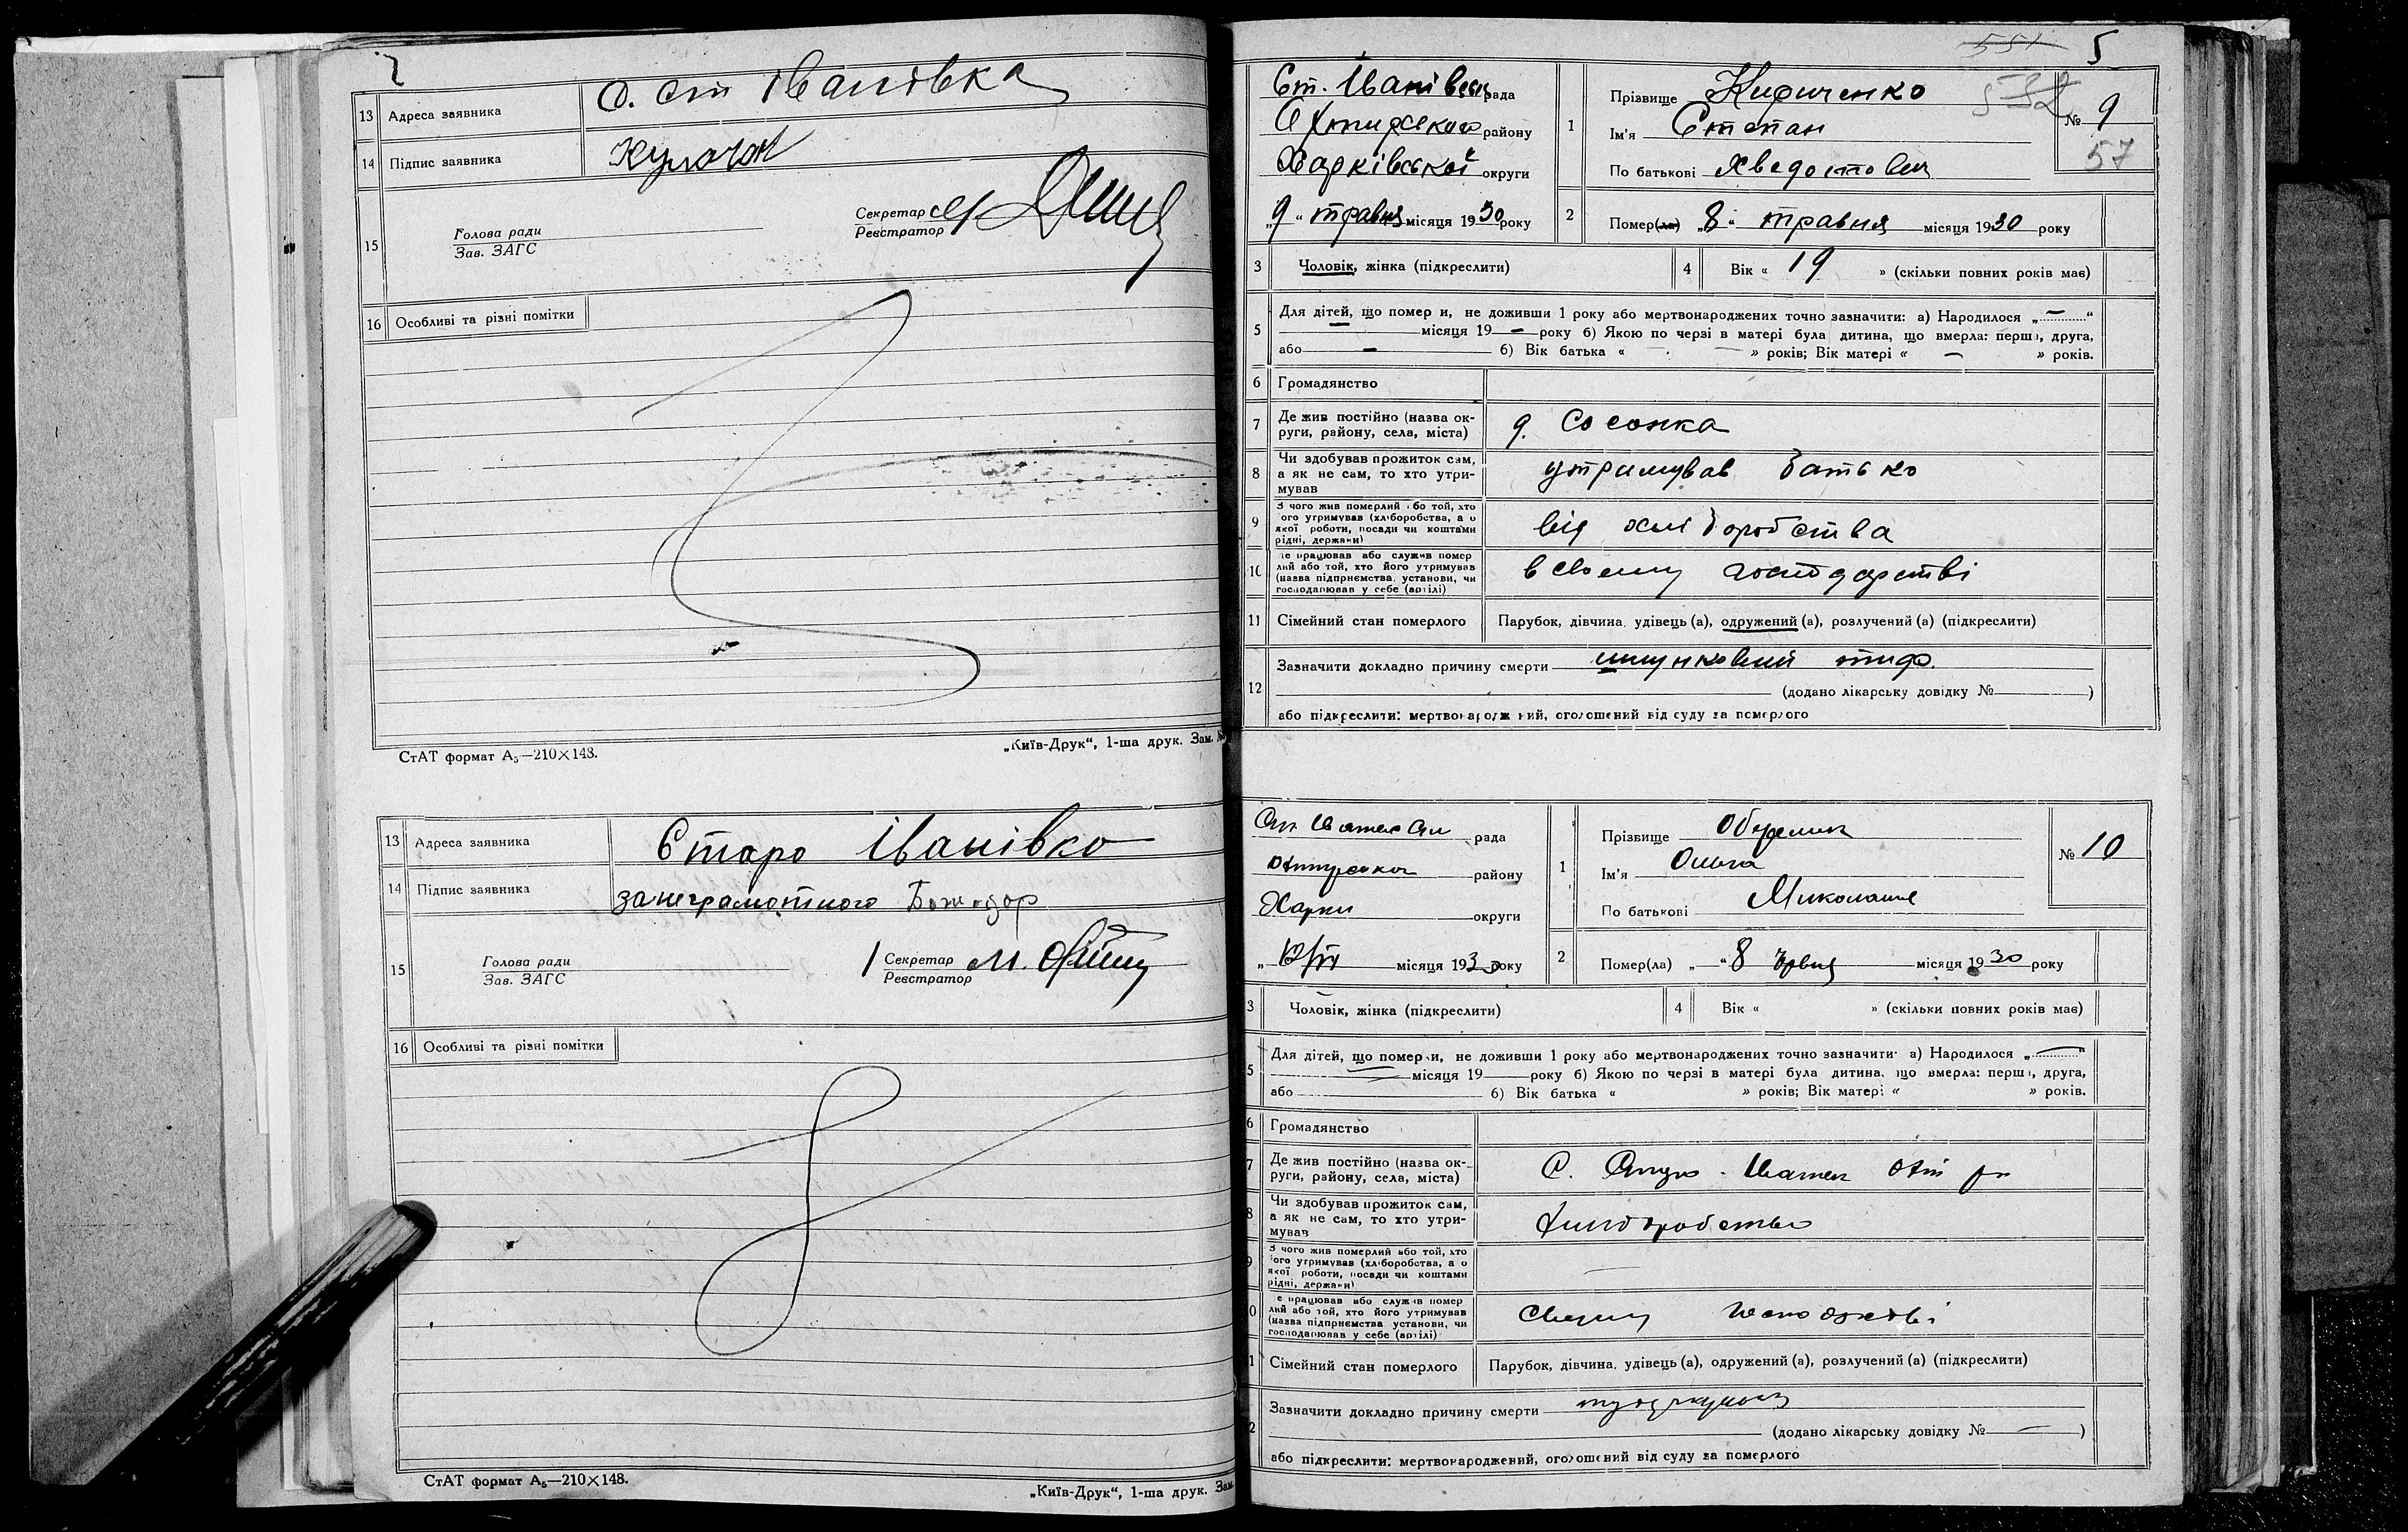 13 Адреса заявника с. Ст Іванівка
14 Підпис заявника
15 Голова ради
Зав. ЗАГС
Секретар
Реєстратор
16 Особливі та різні помітки
СтАТ формат А₅—210×148.
„Київ-Друк“, 1-ша друк. Зам. №
13 Адреса заявника Старо Іванівка
14 Підпис заявника за неграмотного
15 Голова ради
Зав. ЗАГС
Секретар М.
Реєстратор
16 Особливі та різні помітки
СтАТ формат А₅—210×148.
„Київ-Друк“, 1-ша друк. Зам.
551 5
532
57
Ст. Іванівська рада
Охтирського району
Харківської округи
„9“ травня місяця 1930 року
1 Прізвище
Ім'я Степан
По батькові
№ 9
2 Помер(ла) „8“ травня місяця 1930 року
3 Чоловік, жінка (підкреслити)
4 Вік « 19 » (скільки повних років має)
5 Для дітей, що померли, не доживши 1 року або мертвонароджених точно зазначити: а) Народилося „—“
місяця 19 — року б) Якою по черзі в матері була дитина, що вмерла: перша, друга,
або — б) Вік батька « — » років; Вік матері « — » років.
6 Громадянство
7 Де жив постійно (назва ок-
руги, району, села, міста) Сосонка
8 Чи здобував прожиток сам,
а як не сам, то хто утри-
мував
утримував батько
9 З чого жив померлий або той, хто
його утримував (хліборобства, а о
якої роботи, посади чи коштами
рідні, держави)
від хліборобства
10 Де працював або служив помер
лий або той, хто його утримував
(назва підприємства, установи, чи
господарював у себе (артілі)
в своєму господарстві
11 Сімейний стан померлого Парубок, дівчина, удівець (а), одружений (а), розлучений (а) (підкреслити)
12 Зазначити докладно причину смерти шлунковий тиф.
(додано лікарську довідку № )
або підкреслити: мертвонароджений, оголошений від суду за померлого
рада
району
Харків округи
місяця 1930 року
1 Прізвище
Ім'я Ольга
По батькові
№ 10
2 Помер(ла) „ “ 8 місяця 1930 року
3 Чоловік, жінка (підкреслити)
4 Вік « » (скільки повних років має)
5 Для дітей, що померли, не доживши 1 року або мертвонароджених точно зазначити: а) Народилося „—“
місяця 19 року б) Якою по черзі в матері була дитина, що вмерла: перша, друга,
або б) Вік батька « » років; Вік матері « » років.
6 Громадянство
7 Де жив постійно (назва ок-
руги, району, села, міста) С.
8 Чи здобував прожиток сам,
а як не сам, то хто утри-
мував
хліборобства
9 З чого жив померлий або той, хто
його утримував (хліборобства, а о
якої роботи, посади чи коштами
рідні, держави)
Де працював або служив помер
лий або той, хто його утримував
(назва підприємства установи, чи
господарював у себе (артілі)
своєму
Сімейний стан померлого Парубок, дівчина, удівець (а), одружений (а), розлучений (а) (підкреслити)
Зазначити докладно причину смерти
(додано лікарську довідку № — )
або підкреслити: мертвонароджений, оголошений від суду за померлого